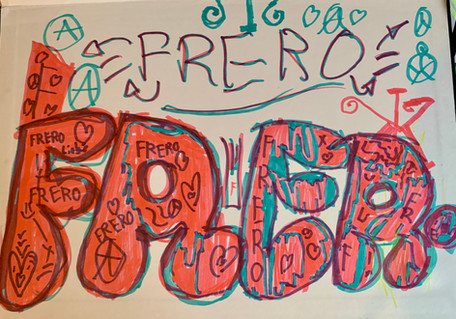 A
FRERO
A
FRER
FRERO
FRERO
FRERO
FRERO
F
FRERO
FR
F